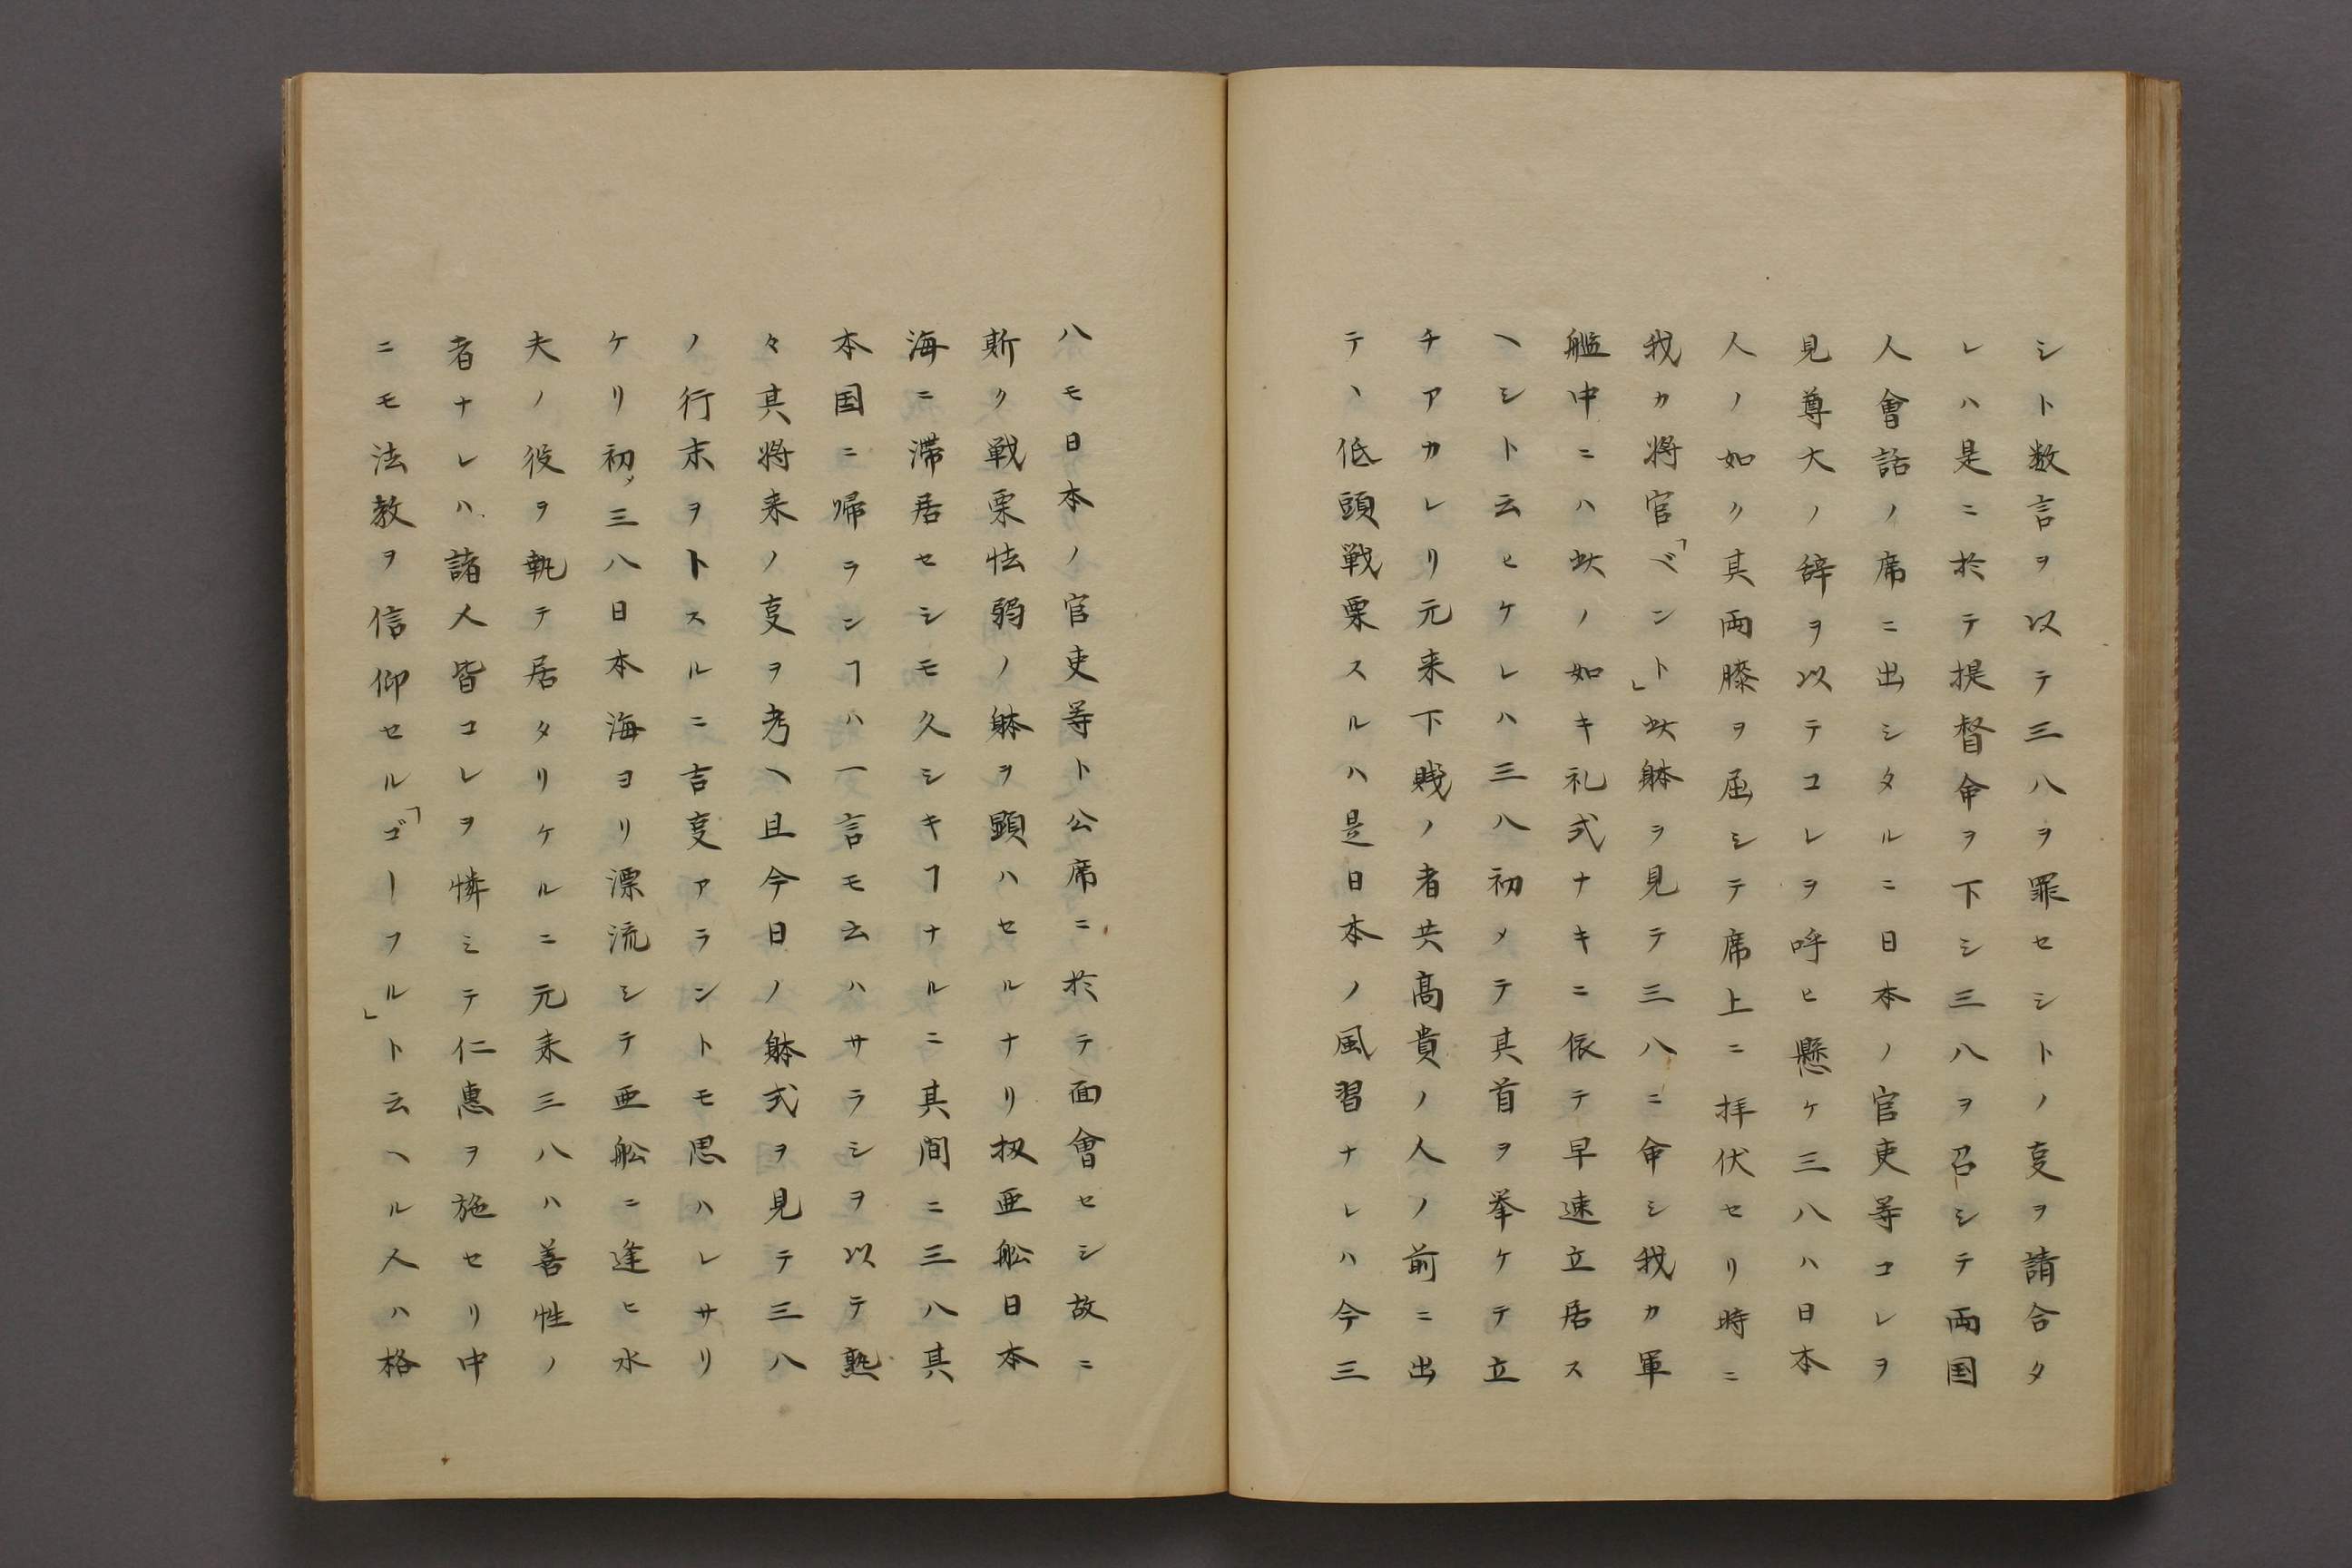 シト数言ヲ以テ三八ヲ罪セシトノ㕝ヲ請合タ
レハ是ニ於テ提督命ヲ下シ三八ヲ召シテ両国
人會話ノ席ニ出シタルニ日本ノ官吏等コレヲ
見尊大ノ辞ヲ以テコレヲ呼ヒ懸ケ三八ハ日本
人ノ如ク其両膝ヲ屈シテ席上ニ拝伏セリ時ニ
我カ将官「ベント」此躰ヲ見テ三八ニ命シ我カ軍
艦中ニハ此ノ如キ礼式ナキニ依テ早速立居ス
ヘシト云ヒケレハ三八初メテ其首ヲ挙ケテ立
チアカレリ元来下賤ノ者共高貴ノ人ノ前ニ出
テヽ低頭戦栗スルハ是日本ノ風習ナレハ今三
八モ日本ノ官吏等ト公席ニ於テ面會セシ故ニ
斯ク戦栗怯弱ノ躰ヲ顕ハセルナリ扨亜舩日本
海ニ滞居セシモ久シキヿナルニ其間ニ三八其
本国ニ帰ランヿハ一言モ云ハサラシヲ以テ熟
々其将来ノ㕝ヲ考ヘ且今日ノ躰式ヲ見テ三八
ノ行末ヲトスルニ吉㕝アラントモ思ハレサリ
ケリ初メ三八日本海ヨリ漂流シテ亜舩ニ逢ヒ水
夫ノ役ヲ執テ居タリケルニ元来三八ハ善性ノ
者ナレハ諸人皆コレヲ憐ミテ仁惠ヲ施セリ中
ニモ法教ヲ信仰セル「ゴーフル」ト云ヘル人ハ格